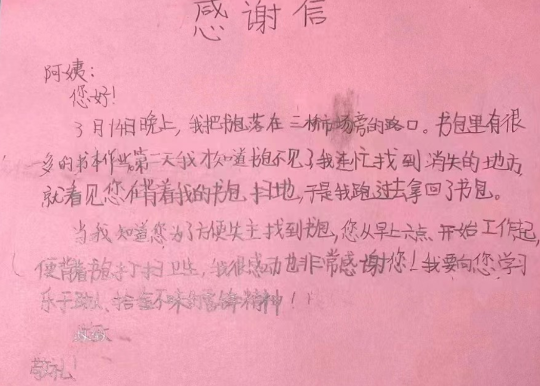 感谢信
阿姨：
您好！
3月14日晚上，我把书包落在三桥市场旁的路口。书包里有很
多的书本作业。第二天我才知道书包不见了我连忙找到消失的地方
就看见您在背着我的书包扫地，于是我跑过去拿回了书包。
当我知道您为了方便失主找到书包，您从早上六点开始工作起，
便背着书包打扫卫生，我很感动也非常感谢您！我要向您学习
乐于助人、拾金不昧的雷锋精神！
敬礼！